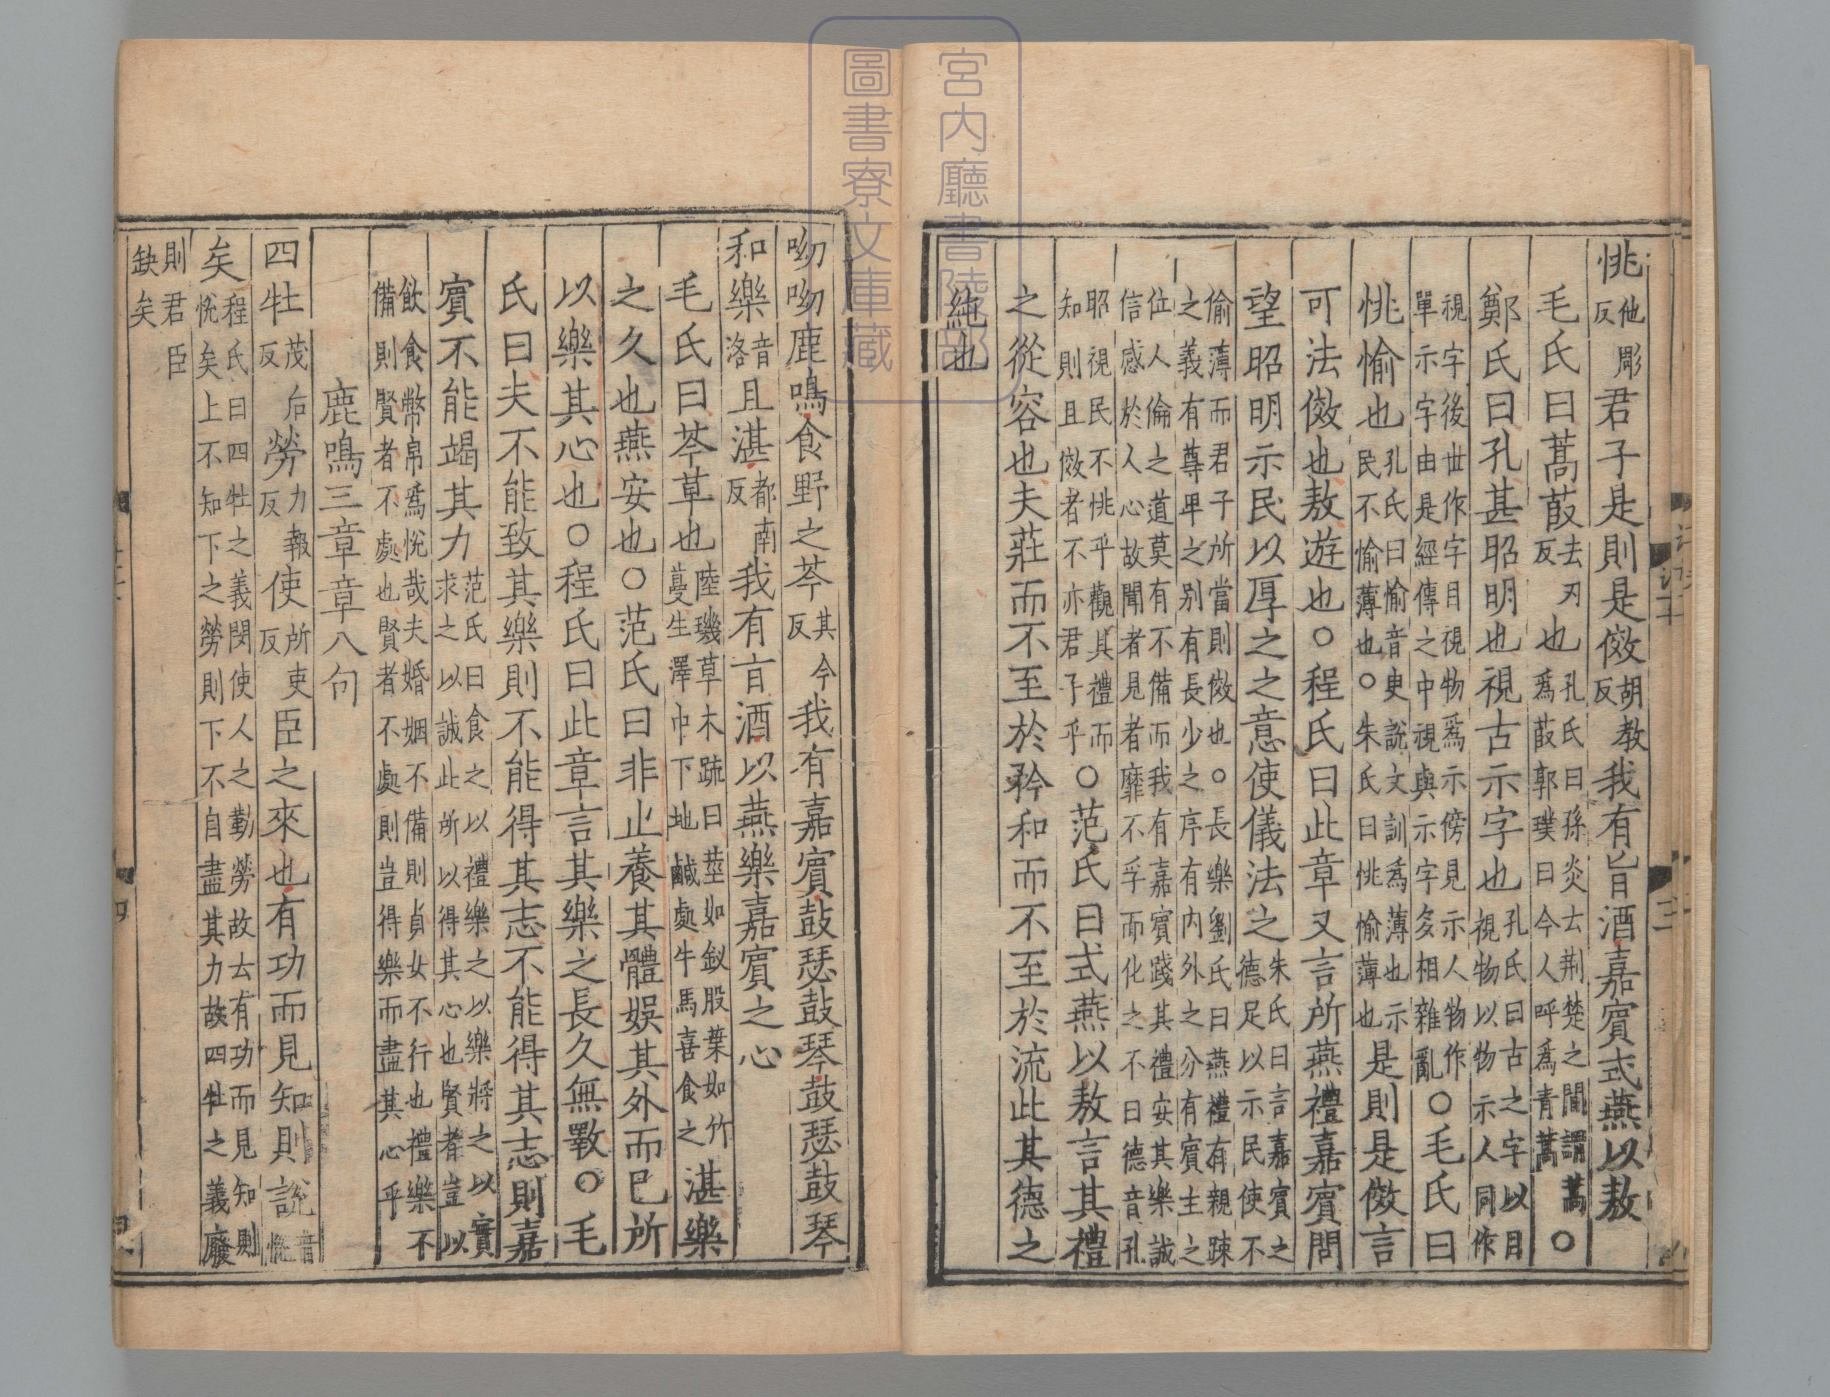 恌他彫反君子是則是傚胡教反我有旨酒嘉賓式燕以敖
毛氏曰蒿菣去刃反也孔氏曰孫炎云荆楚之間謂蒿爲菣郭璞曰今人呼爲青蒿○
鄭氏曰孔甚昭明也視古示字也孔氏曰古之字以目視物以物示人同作
視字後世作字目視物爲示傍見示人物作單示字由是經傳之中視與示字多相雜亂○毛氏曰
恌愉也孔氏曰愉音臾說文訓爲薄也示民不愉薄也○朱氏曰恌愉薄也是則是傚言
可法傚也敖遊也○程氏曰此章又言所燕禮嘉賓問
望昭明示民以厚之之意使儀法之朱氏曰言嘉賓之德足以示民使不
偷薄而君子所當則傚也○長樂劉氏曰燕禮有親疎之義有尊卑之别有長少之序有内外之分有賓主之
位人倫之道莫有不備而我有嘉賓踐其禮安其樂誠信感於人心故聞者見者靡不孚而化之不曰德音孔
昭視民不恌乎觀其禮而知則且傚者不亦君子乎○范氏曰式燕以敖言其禮
之從容也夫莊而不至於矜和而不至於流此其德之
純也
呦呦鹿鳴食野之芩其今反我有嘉賓鼓瑟鼓琴鼓瑟鼓琴
和樂音洛且湛都南反我有旨酒以燕樂嘉賓之心
毛氏曰芩草也陸璣草木疏曰莖如釵股葉如竹蔓生澤中下地鹹處牛馬喜食之湛樂
之久也燕安也○范氏曰非止養其體娱其外而已所
以樂其心也○程氏曰此章言其樂之長久無斁○毛
氏曰夫不能致其樂則不能得其志不能得其志則嘉
賓不能竭其力范氏曰食之以禮樂之以樂將之以實求之以誠此所以得其心也賢者豈以
飲食幣帛爲悅哉夫婚姻不備則貞女不行也禮樂不備則賢者不處也賢者不處則豈得樂而盡其心乎
鹿鳴三章章八句
四牡茂后反勞力報反使所吏反臣之來也有功而見知則說音悅
矣程氏曰四牡之義閔使人之勤勞故云有功而見知則悅矣上不知下之勞則下不自盡其力故四牡之義廢
則君臣缺矣
宮内廳書陵部
圖書寮文庫藏